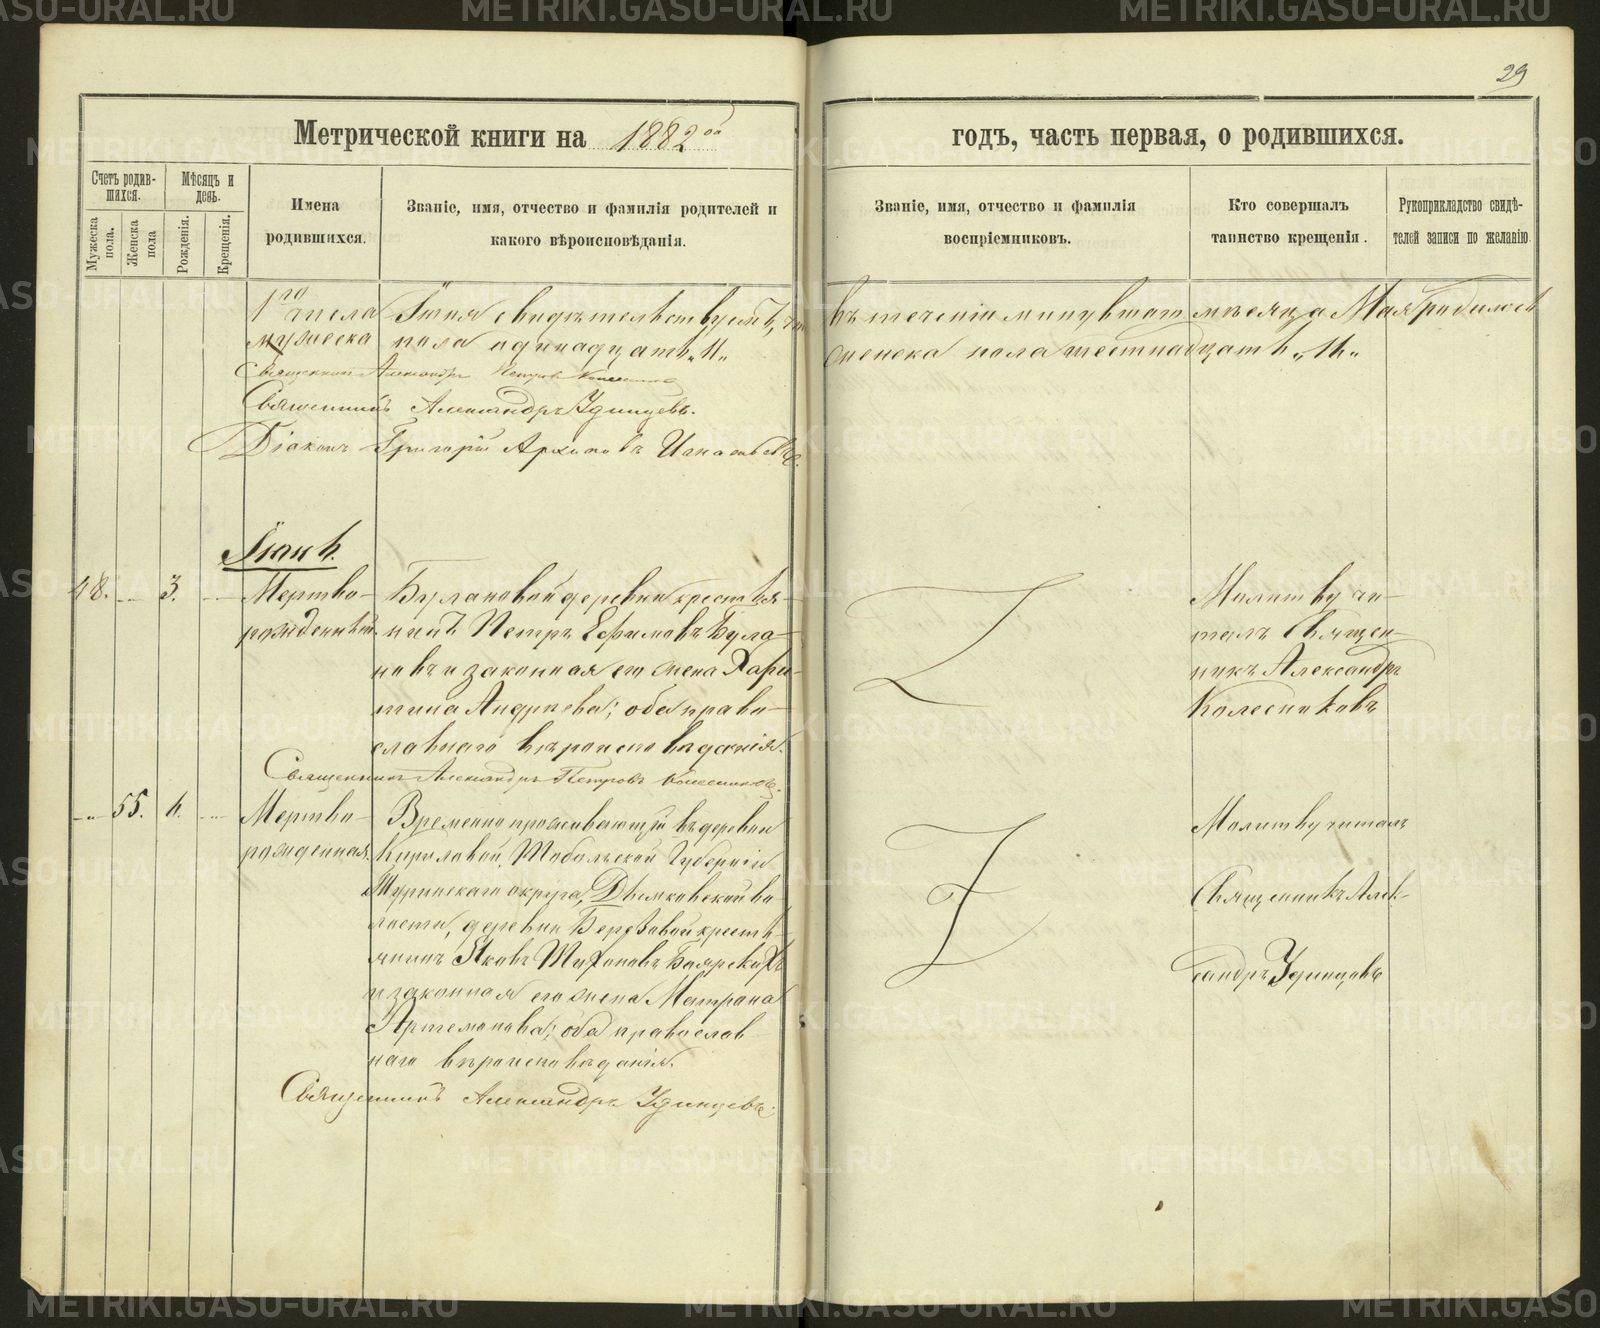 29
Метрической книги на 1882ой
годъ, часть первая, о родившихся.
Счетъ родившихся.
Мужеска пола.
Женска пола
Мѣсяцъ и день.
Рожденія.
Крещенія.
Имена родившихся.
Званіе, имя, отчество и фамилія родителей и какого вѣроисповѣданія.
Званіе, имя, отчество и фамилія воспріемниковъ.
Кто совершалъ таинство крещенія.
Рукоприкладство свидѣтелей записи по желанію
1го числа Іюня свидѣтельствуемъ, что въ теченіи минувшаго мѣсяца Мая родилося
мужеска пола одинадцать „11„ женска пола шестнадцать „16„
Священникъ Александръ Петровъ Колесниковъ
Священникъ Александръ Удинцевъ.
Діаконъ Григорій Архиповъ Игнатьевъ.
Іюнь.
48. 3. Мертво-
рожденный.
Булановой деревни крестья-
нинъ Петръ Ефимовъ Була-
новъ и законная его жена Хари-
тина Андреева; оба право-
славнаго вѣроисповѣданія.
Молитву чи-
талъ Священ-
никъ Александръ
Колесниковъ
Священникъ Александръ Петровъ Колесниковъ.
55. 6. Мертво-
рожденная.
Временно проживающій въ деревни
Кириловой, Тобольской Губерніи
Туринскаго округа, во-
лости, деревни Березовой кресть-
янинъ Яковъ Тихоновъ Боярскихъ
и законная его жена Матрона
Артемонова; оба православ
наго вѣроисповѣданія.
Молитву читалъ
Священникъ Алек-
сандръ Удинцовъ
Священникъ Александръ Удинцевъ.
METRIKI.GASO-URAL.RU